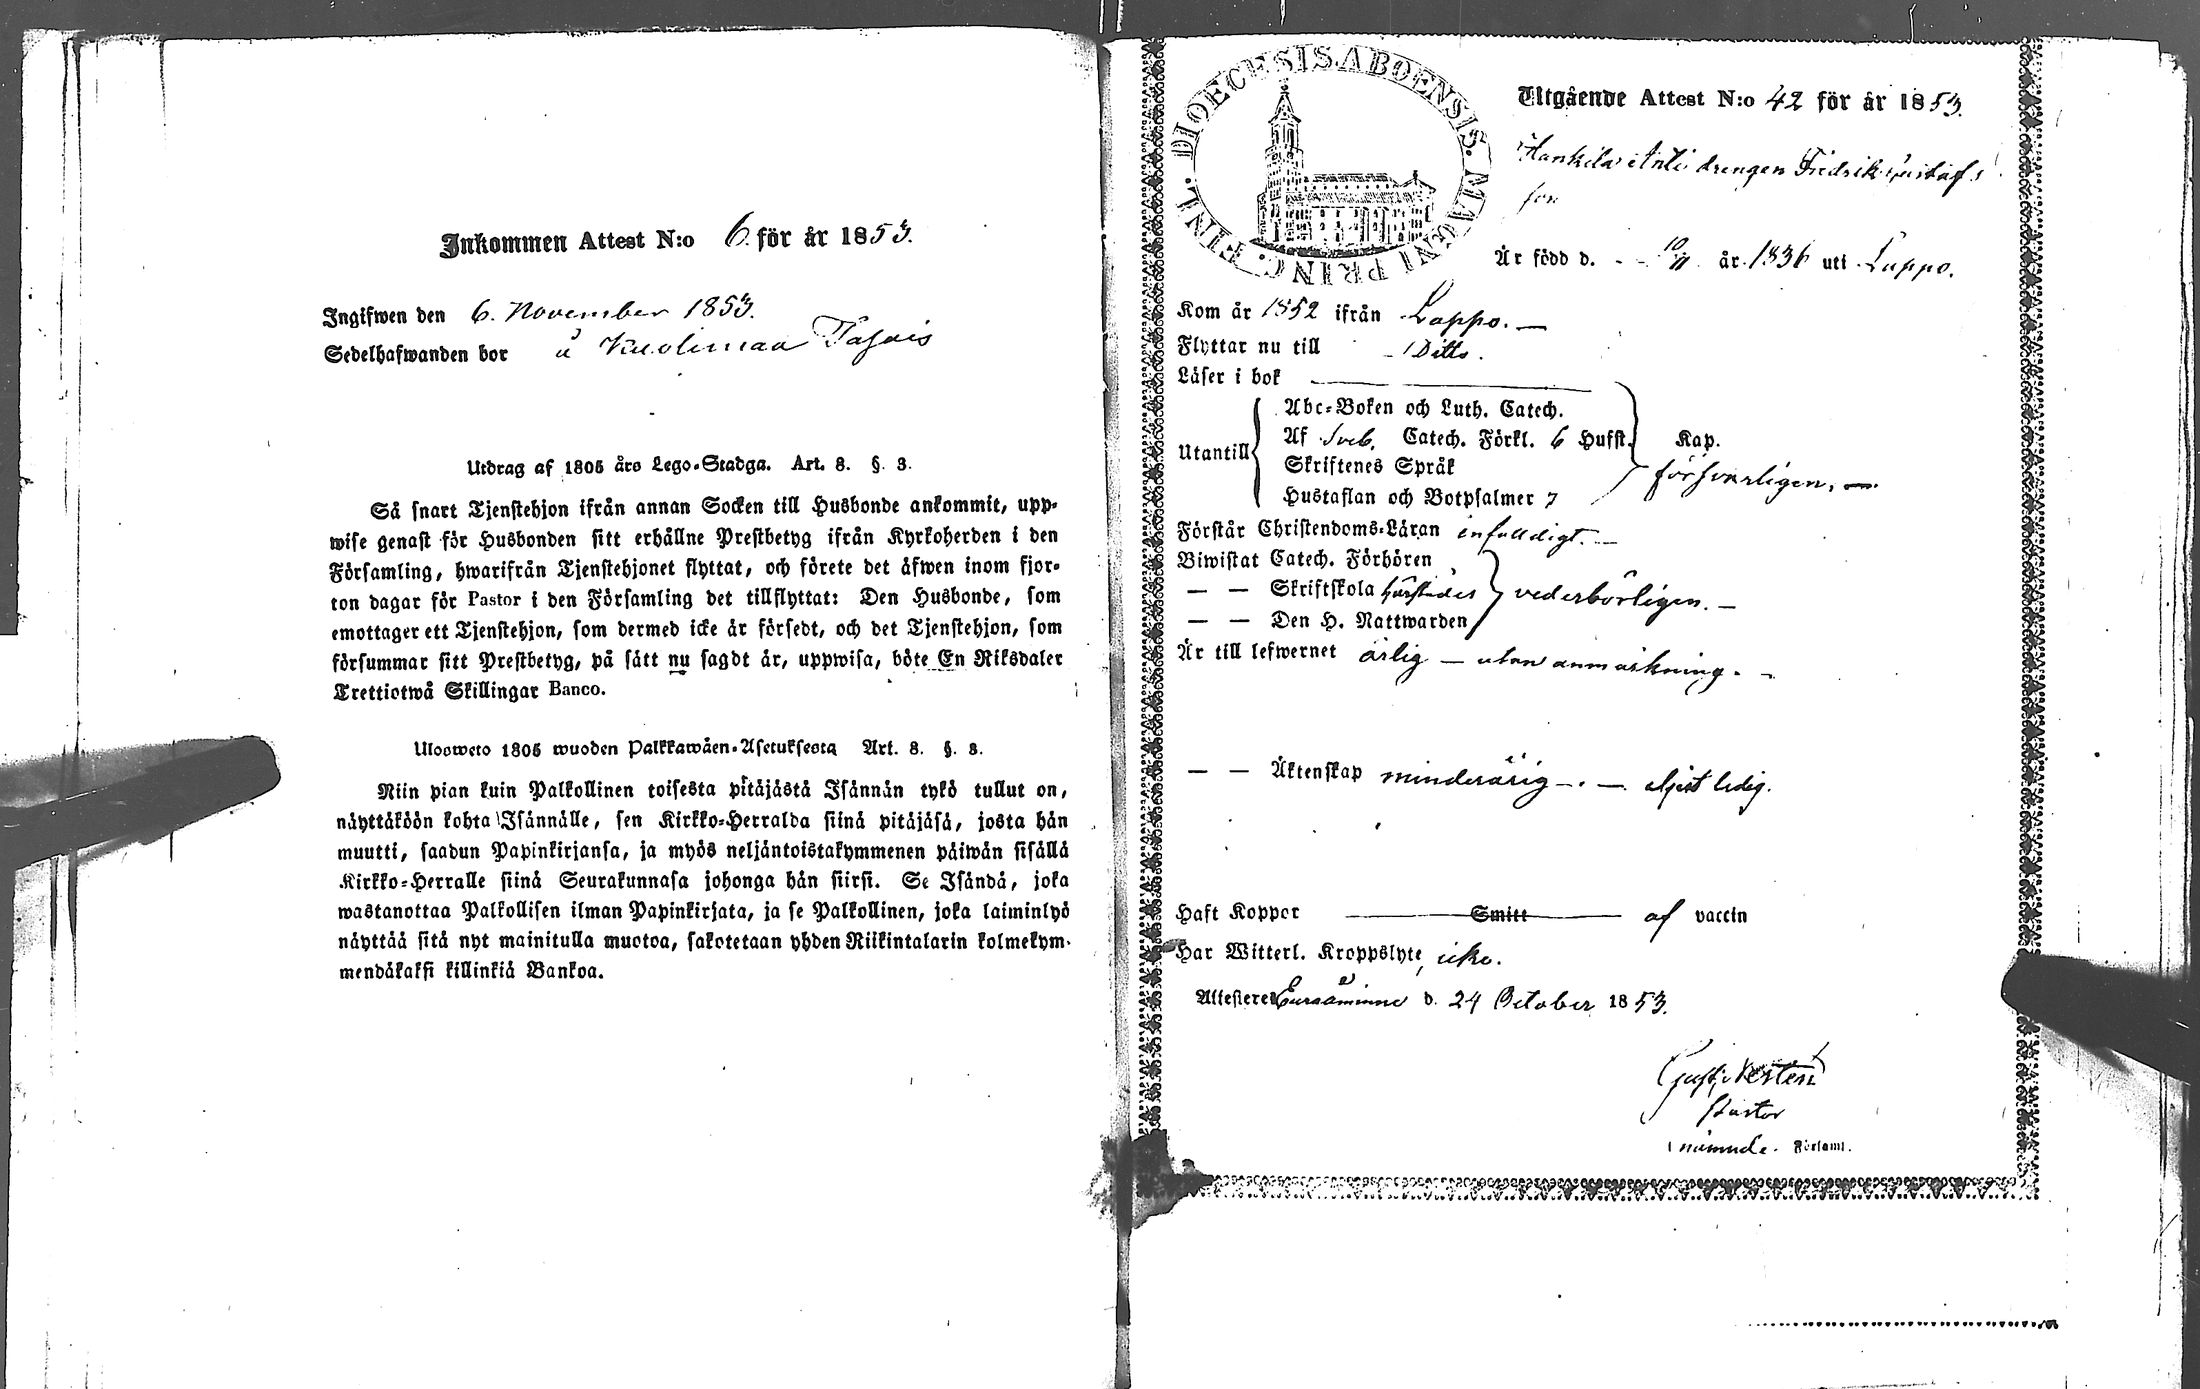 Inkommen Attest N:o 6. för år 1853.
Ingifwen den 6. November 1853.
Sedelhafwanden bor å Kuolimaa
Utdrag af 1805 års Lego-Stadga. Art. 8. §. 3.
Så snart Tjenstehjon ifrån annan Socken till Husbonde ankommit, upp-
wise genast för Husbonden sitt erhållne Prestbetyg ifrån Kyrkoherden i den
Församling, hwarifrån Tjenstehjonet flyttat, och förete det äfwen inom fjor-
ton dagar för Pastor i den Församling det tillflyttat: Den Husbonde, som
emottager ett Tjenstehjon, som dermed icke är försedt, och det Tjenstehjon, som
försummar sitt Prestbetyg, på sätt nu sagdt är, uppwisa, böte En Riksdaler
Trettiotwå Skillingar Banco.
Ulosweto 1805 wuoden Palkkawäen-Asetuksesta Art. 8. §. 3.
Niin pian kuin Palkollinen toisesta pitäjästä Isännän tykö tullut on,
näyttäköön kohta Isännälle, sen Kirkko-Herralda siinä pitäjäsä, josta hän
muutti, saadun Papinkirjansa, ja myös neljäntoistakymmenen päiwän sisällä
Kirkko-Herralle siinä Seurakunnasa johonga hän siirsi. Se Isändä, joka
wastanottaa Palkollisen ilman Papinkirjata, ja se Palkollinen, joka laiminlyö
näyttää sitä nyt mainitulla muotoa, sakotetaan yhden Riikintalarin kolmekym-
mendäkaksi killinkiä Bankoa.
DIOECESIS ABOENSIS. MAGNI PRINC. FINL.
Utgående Attest N:o 42 för år 1853.
Hankila Anti drengen Fredrik Gustafs
son
Är född d. - - 10/11 år 1836 uti Lappo.
Kom år 1852 ifrån Lappo. —
Flyttar nu till - Ditto.
Läser i bok
Utantill
Abc-Boken och Luth. Catech.
Af Sveb. Catech. Förkl. 6 Hufst. Kap.
Skriftenes Språk
försvarligen. —
Hustaflan och Botpsalmer 7
Förstår Christendoms-Läran enfaldigt. —
Biwistat Catech. Förhören
— — Skriftskola härstädes vederbörligen. —
— — Den H. Nattwarden
Är till lefwernet ärlig — utan anmärkning. -
— — Äktenskap minderårig —. — eljest ledig.
Haft Koppor Smitt af vaccin
Har Witterl. Kroppslyte icke.
Attesteres Euraåminne d. 24 October 1853.
Pastor
i nämnde Församl.